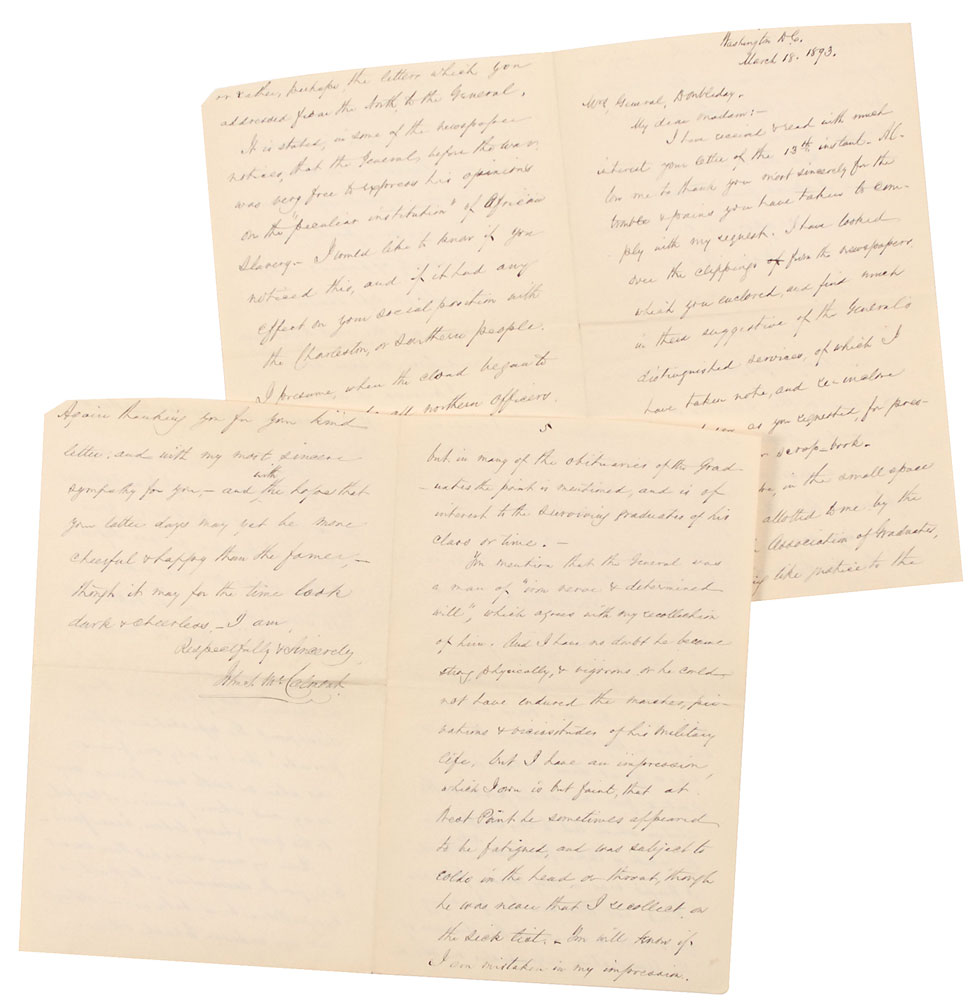 Washington D.C.
March 18. 1893.
Mrs General, Doubleday.
My dear Madam:-
I have received & read with much
interest your letter of the 13th instant. Al-
low me to thank you most sincerely for the
trouble & pains you have taken to com-
ply with my request. I have looked
over the clippings of from the newspapers
which you enclosed, and find much
in these suggestive of the General's
distinguished services, of which I
have taken note, and re-inclose
as you requested, for pres-
scrap-book.
in the small space
allotted to me by the
Association of Graduates,
like justice to the
or rather, perhaps, the letters which you
addressed from the North to the General.
It is stated, in some of the newspaper
notices, that the General, before the war,
was very free to express his opinions
on the "peculiar institution" of African
Slavery - I would like to know if you
noticed this, and if it had any
effect on your social position with
the Charleston, or Southern people.
I presume, when the cloud began to
all northern officers
5
but in many of the obituaries of the Grad-
-uates the point is mentioned, and is of
interest to the surviving graduates of his
class or time. -
You mention that the General was
a man of "iron nerve & determined
will", which agrees with my recollection
of him. And I have no doubt he became
strong physically, & vigorous or he could
not have endured the marches, pri-
vations & vicissitudes of his military
life, but I have an impression,
which I own is but faint, that at
West Point he sometimes appeared
to be fatigued, and was subject to
colds in the head, or throat, though
he was never that I recollect, on
the sick list. - You will know if
I am mistaken in my impression.
Again thanking you for your kind
letter; and with my most sincere
sympathy for you - and with the hopes that
your latter days may yet be more
cheerful & happy than the former, -
though it may for the time look
dark & cheerless - I am,
Respectfully & Sincerely